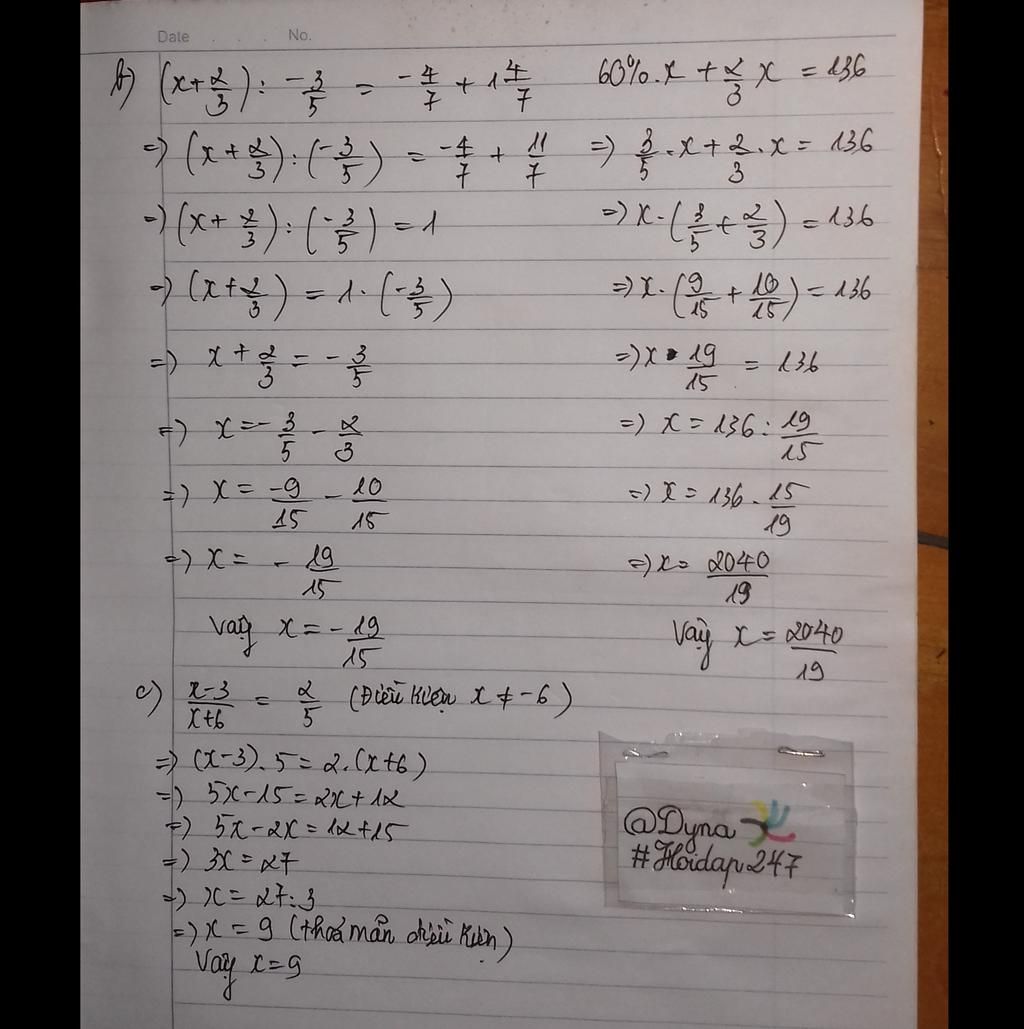 Date . . . No.
b) (x + 2/3) : -3/5 = -4/7 + 1 4/7
=> (x + 2/3) : (-3/5) = -4/7 + 11/7
=> (x + 2/3) : (-3/5) = 1
=> (x + 2/3) = 1 . (-3/5)
=> x + 2/3 = - 3/5
=> x = - 3/5 - 2/3
=> x = -9/15 - 10/15
=> x = - 19/15
Vậy x = - 19/15
60% . x + 2/3 x = 136
=> 3/5 . x + 2/3 . x = 136
=> x . (3/5 + 2/3) = 136
=> x . (9/15 + 10/15) = 136
=> x . 19/15 = 136
=> x = 136 : 19/15
=> x = 136 . 15/19
=> x = 2040/19
Vậy x = 2040/19
c) x-3/x+6 = 2/5 (Điều kiện x ≠ -6)
=> (x-3) . 5 = 2 . (x+6)
=> 5x - 15 = 2x + 12
=> 5x - 2x = 12 + 15
=> 3x = 27
=> x = 27 : 3
=> x = 9 (thoả mãn điều kiện)
Vậy x = 9
@Dyna
#Hoidap247